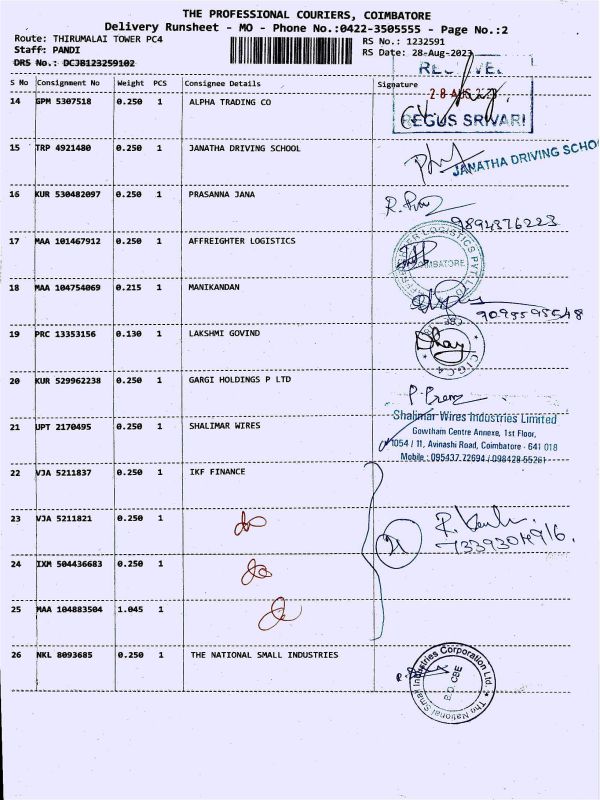 THE PROFESSIONAL COURIERS, COIMBATORE
Delivery Runsheet - MO - Phone No.:0422-3505555 - Page No.:2
Route: THIRUMALAI TOWER PC4
Staff: PANDI
DRS No.: DCJB123259102
RS No.: 1232591
RS Date: 28-Aug-2023
S No Consignment No Weight PCS Consignee Details Signature
14 GPM 5307518 0.250 1 ALPHA TRADING CO
REGUS SRIVARI
15 TRP 4921480 0.250 1 JANATHA DRIVING SCHOOL
JANATHA DRIVING SCHOO
16 KUR 530482097 0.250 1 PRASANNA JANA
9894376223
17 MAA 101467912 0.250 1 AFFREIGHTER LOGISTICS
18 MAA 104754069 0.215 1 MANIKANDAN
9095595548
19 PRC 13353156 0.130 1 LAKSHMI GOVIND
20 KUR 529962238 0.250 1 GARGI HOLDINGS P LTD
21 UPT 2170495 0.250 1 SHALIMAR WIRES
Shalimar Wires Industries Limited
Gowtham Centre Annexe, 1st Floor,
1054 / 11, Avinashi Road, Coimbatore - 641 018
Mobile : 095437-72694 / 098428-55261
22 VJA 5211837 0.250 1 IKF FINANCE
23 VJA 5211821 0.250 1
24 IXM 504436683 0.250 1
25 MAA 104883504 1.045 1
26 NKL 8093685 0.250 1 THE NATIONAL SMALL INDUSTRIES
The National Small Industries Corporation Ltd.
B.O. CBE